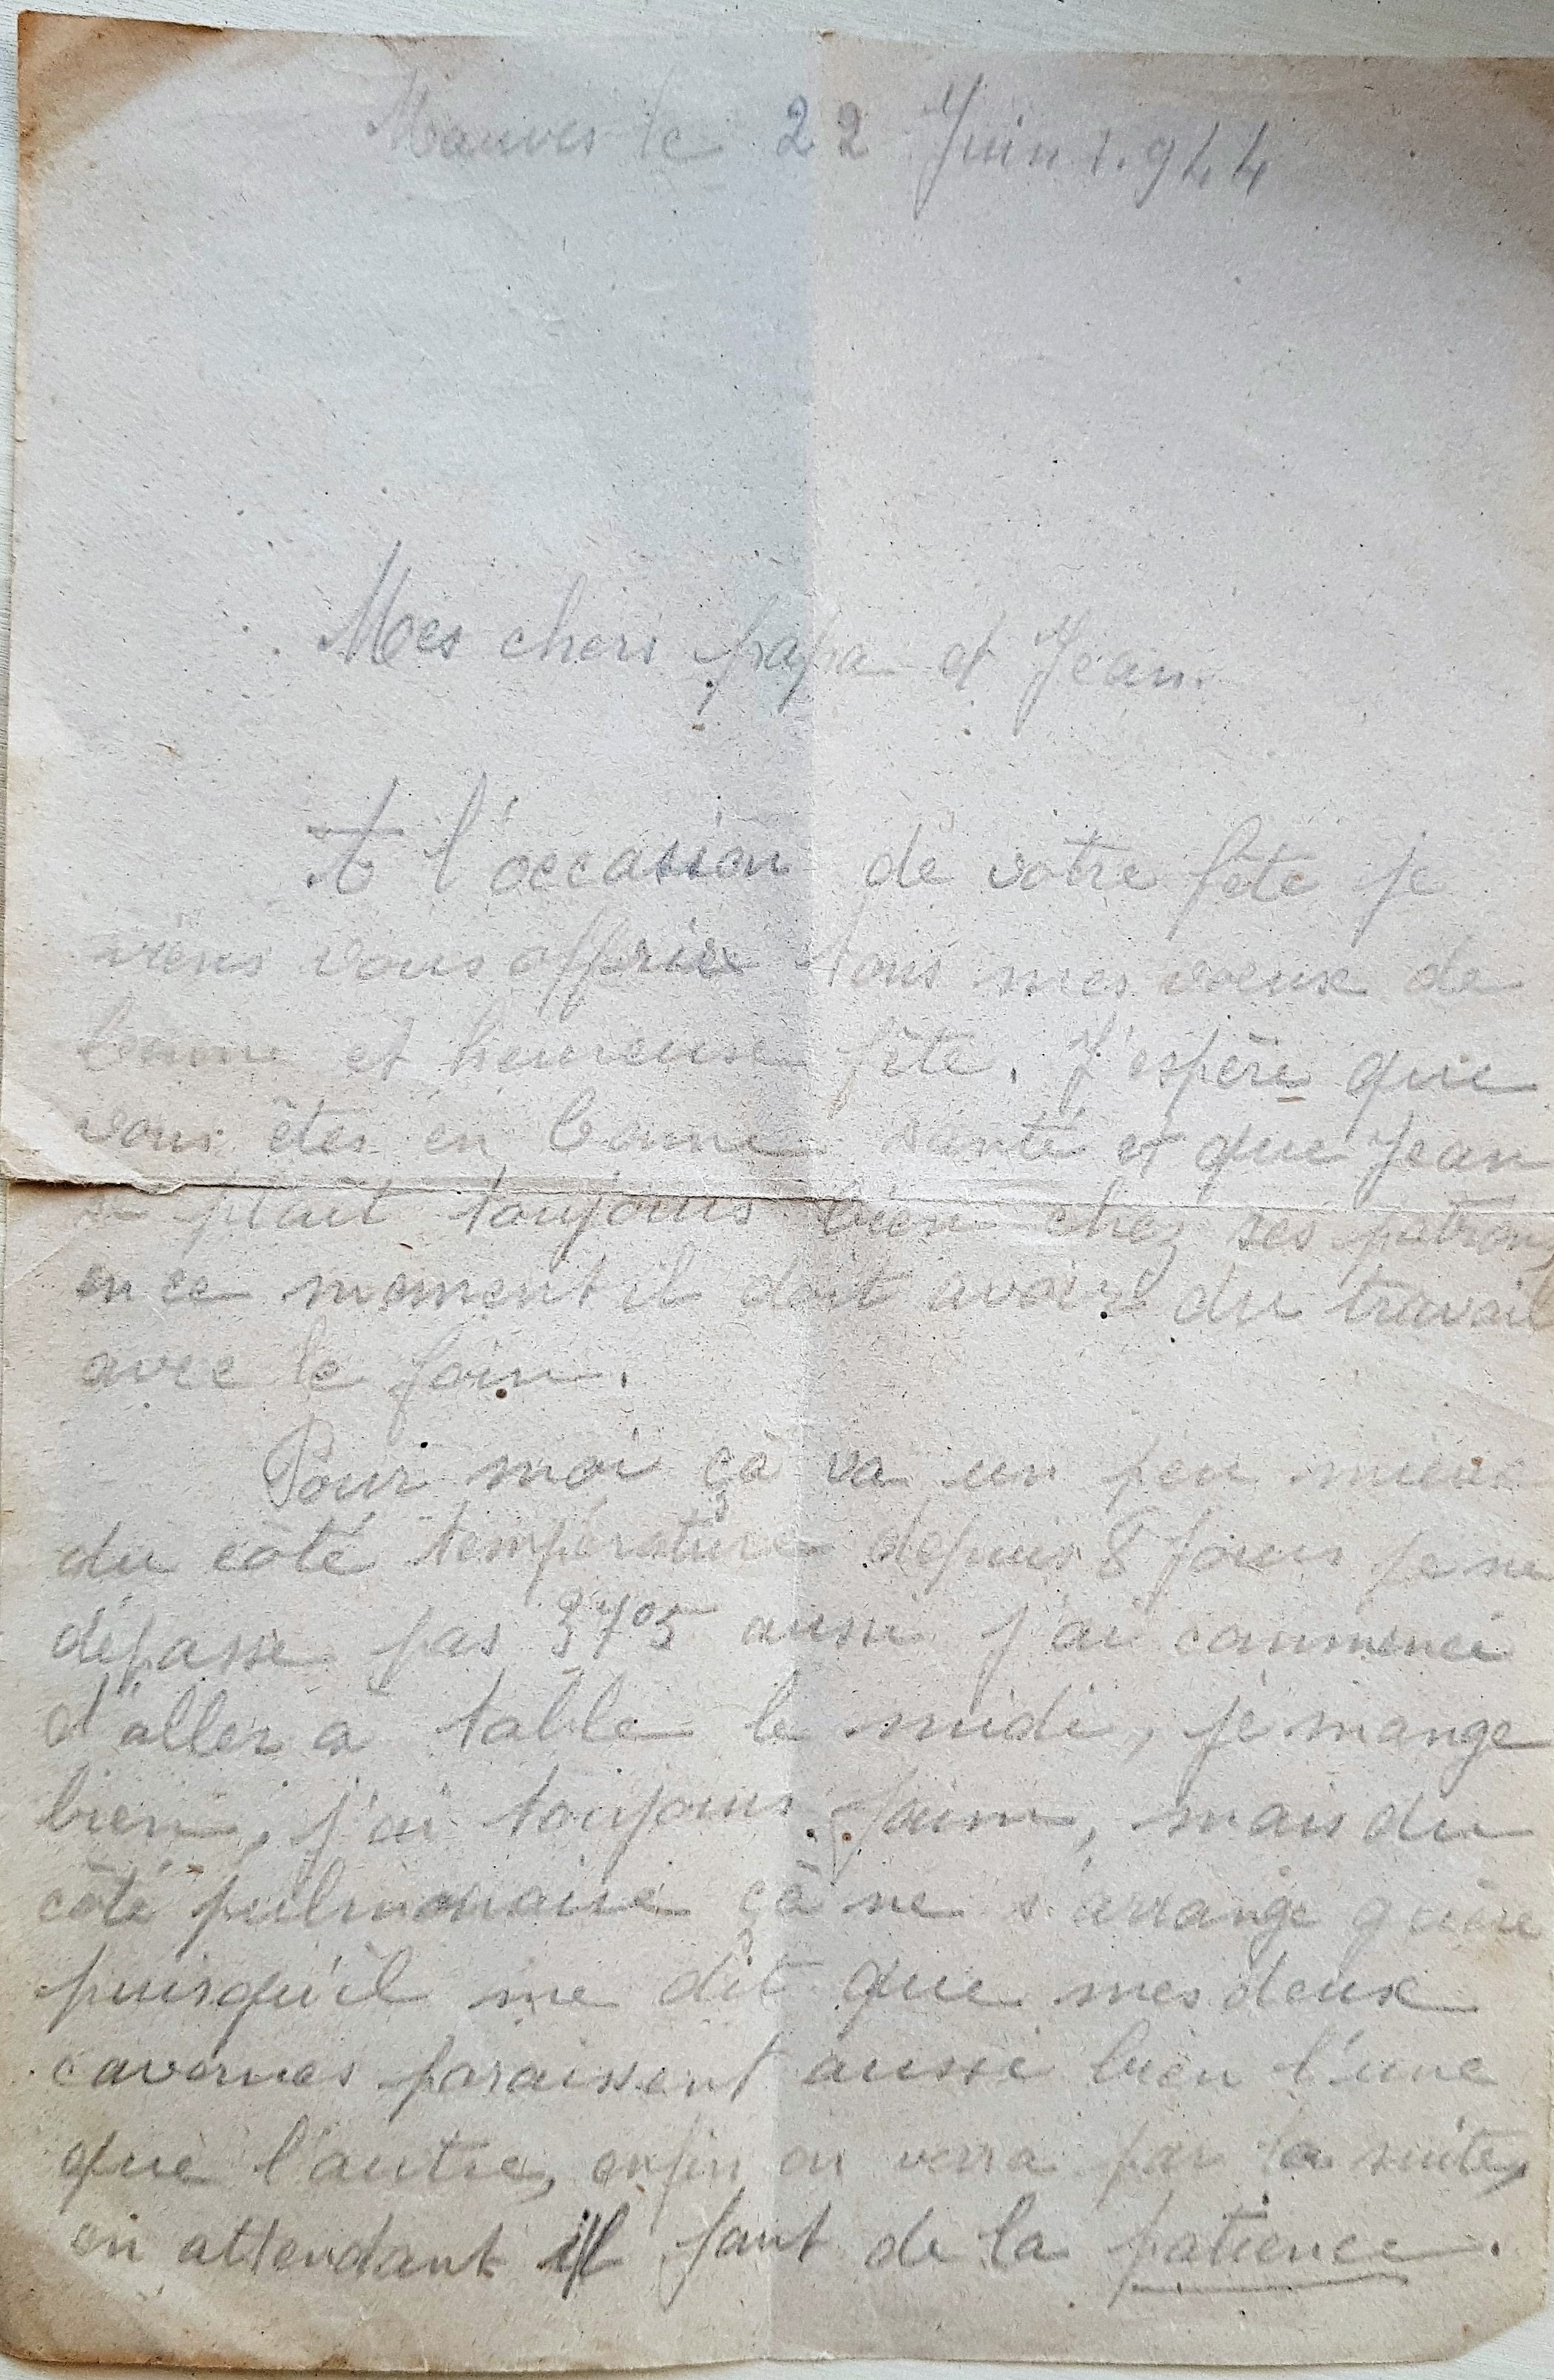 Mauves le 22 Juin 1.944
Mes chers papa et Jean.
A l'occasion de votre fête je
viens vous offrir tous mes voeux de
bonne et heureuse fête. J'espère que
vous êtes en bonne santé et que Jean
se plait toujours bien chez ses patrons
en ce moment il doit avoir du travail
avec le foin.
Pour moi çà va un peu mieux
du côté température depuis 8 jours je ne
dépasse pas 37°5 aussi j'ai commencé
d'aller a table le midi, je mange
bien, j'ai toujours faim, mais du
côté pulmonaire çà ne s'arrange guère
puisqu'il me dit que mes deux
cavernes paraissent aussi bien l'une
que l'autre, enfin on verra par la suite,
en attendant il faut de la patience.